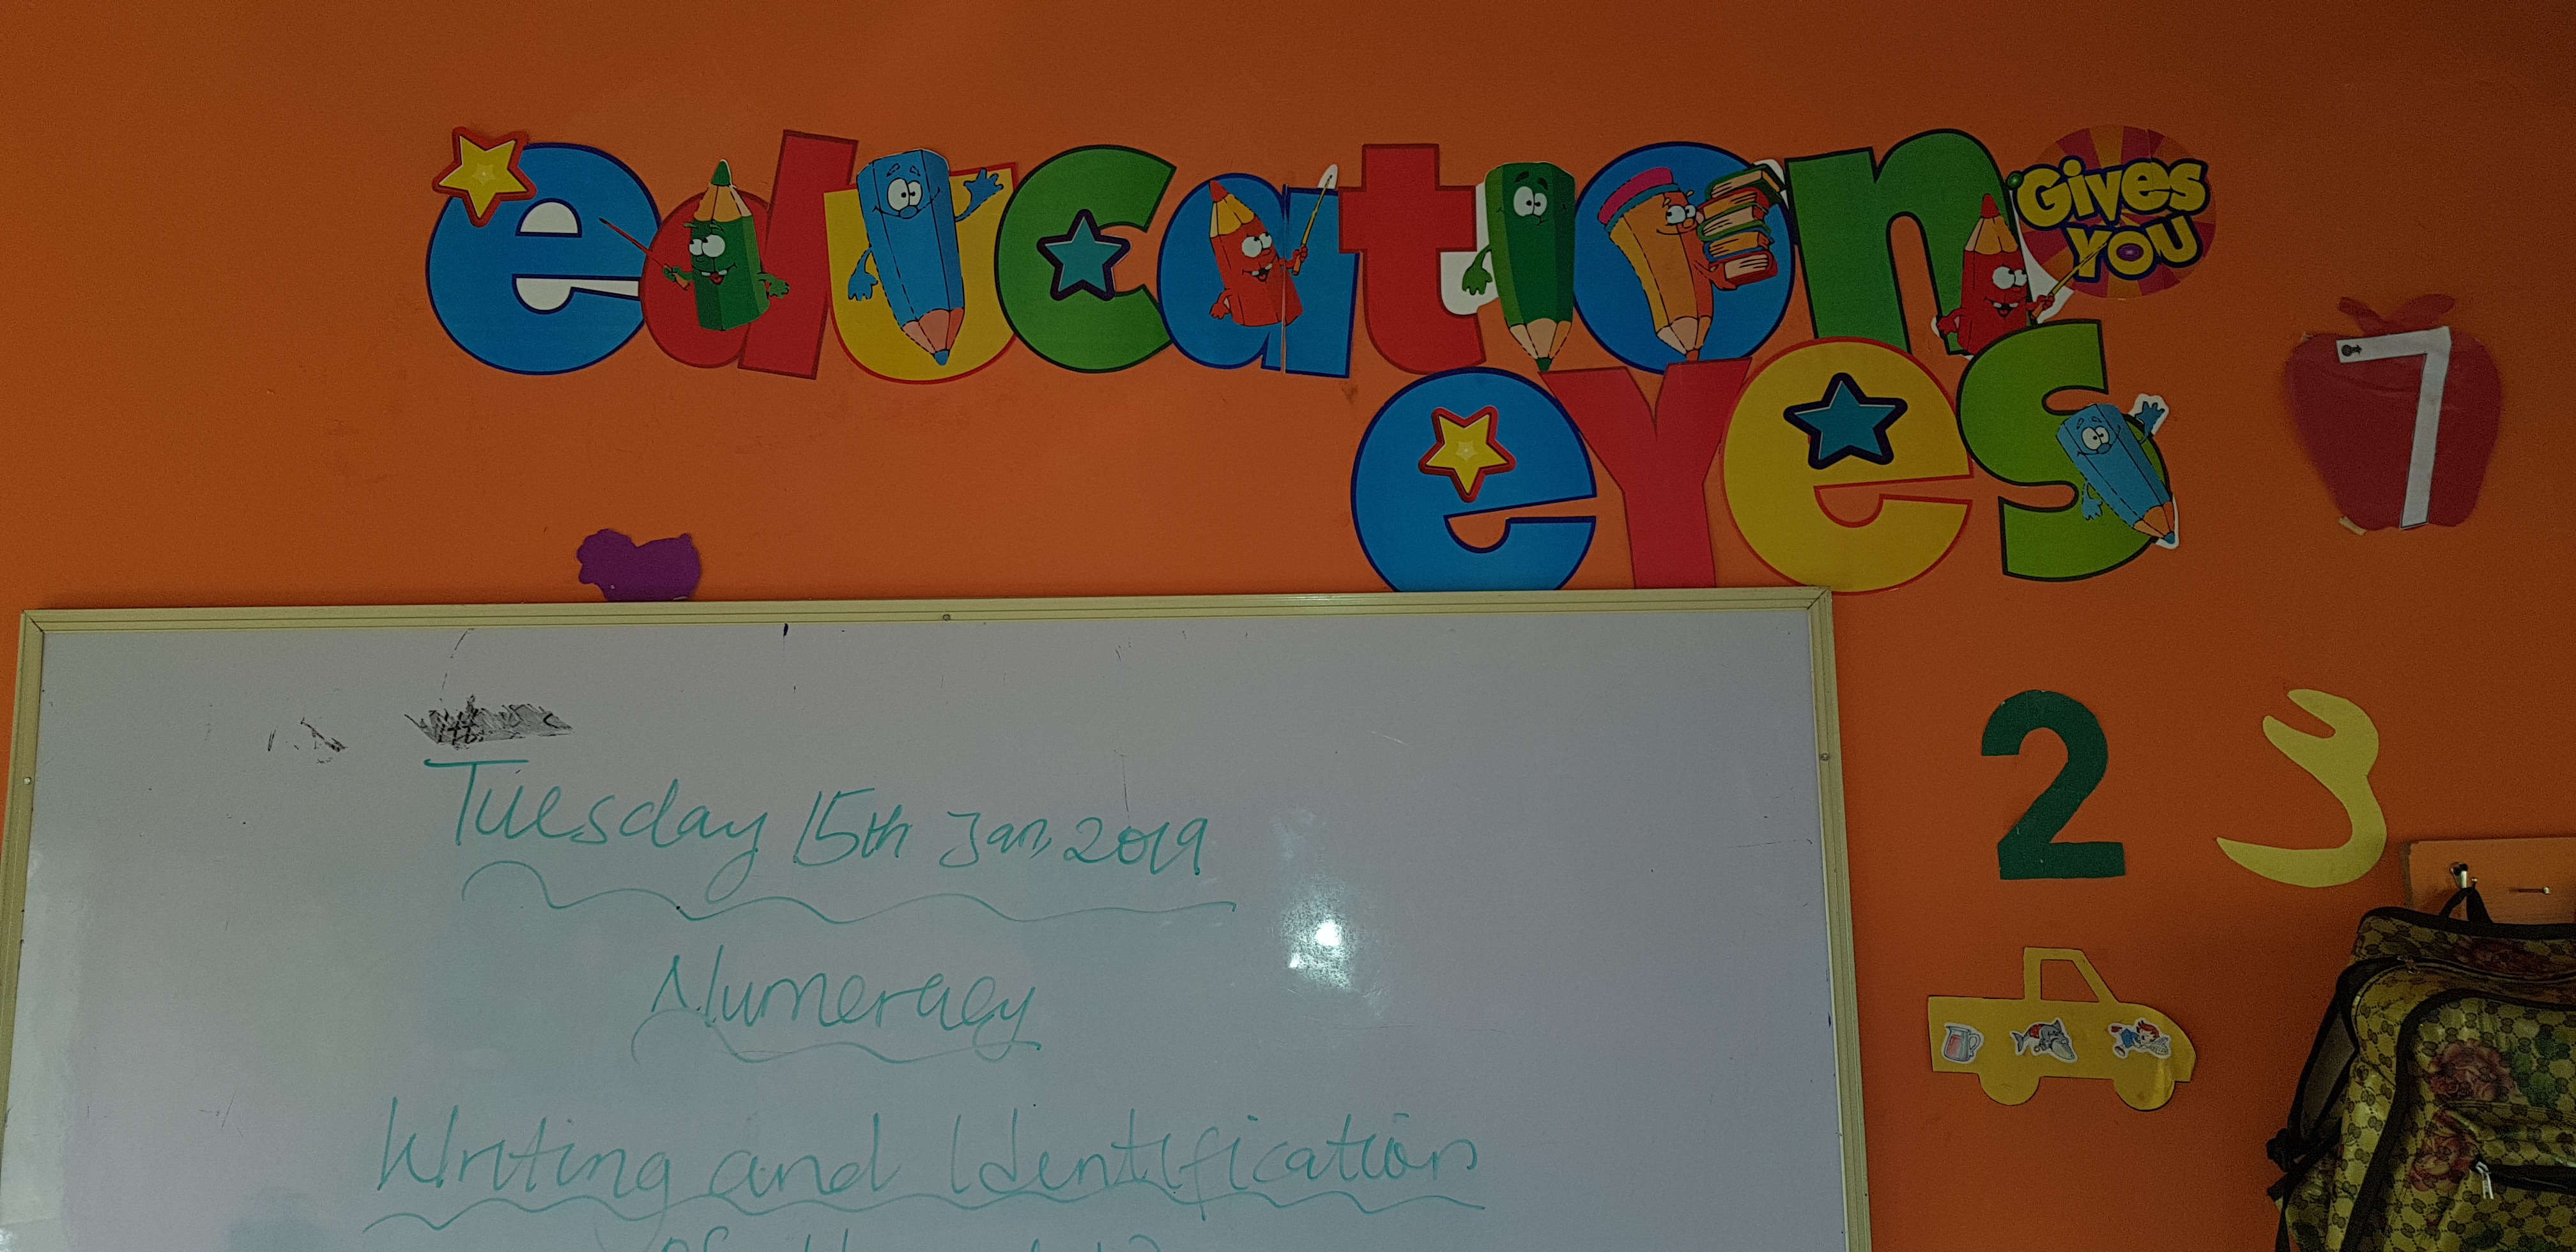 education Gives
YOU
eyes
7
2
Tuesday 15th Jan, 2019
Numeracy
Writing and Identification
of